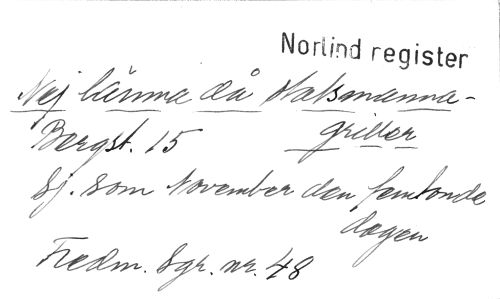 Norlind register
Nej länna då Statsmanna-
griller
Bergst. 15
Sj. som November den femtonde
dagen
Fredm. Sgr. nr. 48